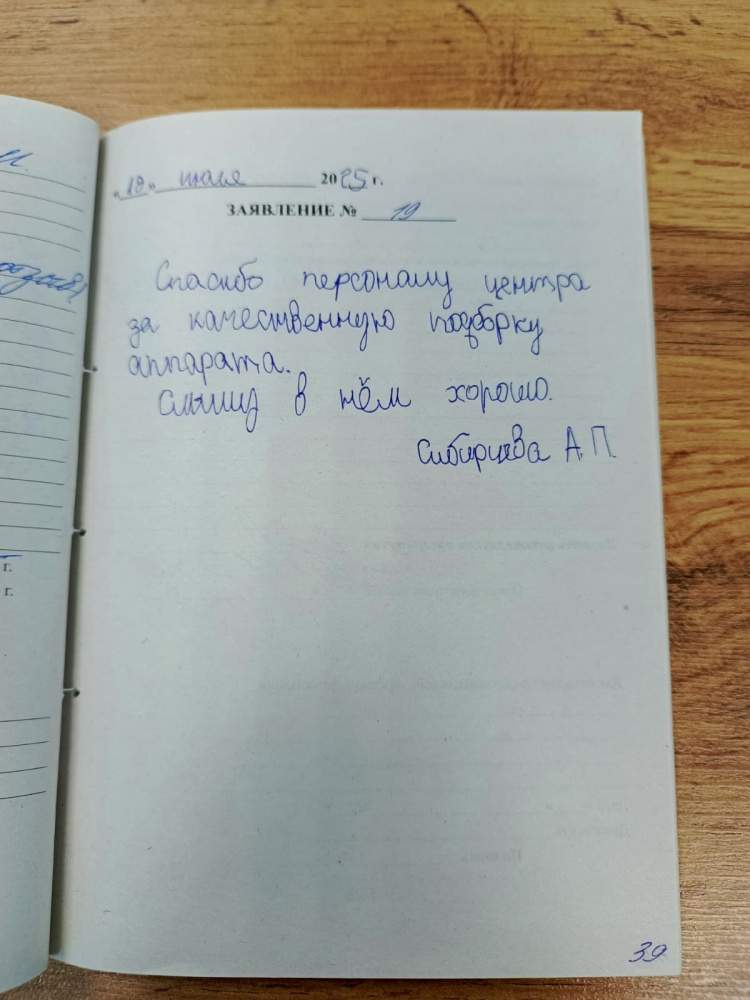 "18" июля 2025 г.
ЗАЯВЛЕНИЕ № 19
Спасибо персоналу центра
за качественную подборку
аппарата.
Слышу в нём хорошо.
Сибирцева А.П
г.
г.
39